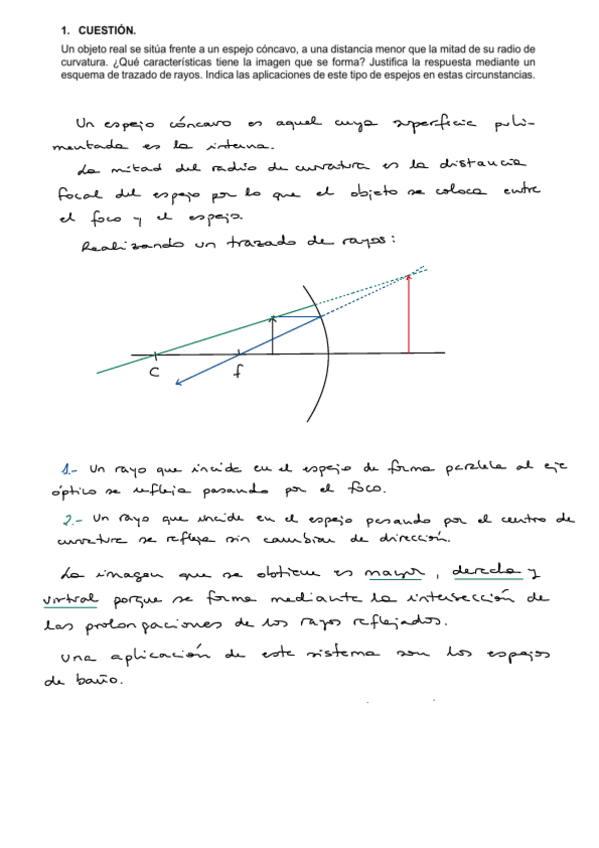 1. CUESTIÓN.
Un objeto real se sitúa frente a un espejo cóncavo, a una distancia menor que la mitad de su radio de
curvatura. ¿Qué características tiene la imagen que se forma? Justifica la respuesta mediante un
esquema de trazado de rayos. Indica las aplicaciones de este tipo de espejos en estas circunstancias.
Un espejo cóncavo es aquel cuya superficie puli-
mentada es la interna.
La mitad del radio de curvatura es la distancia
focal del espejo por lo que el objeto se coloca entre
el foco y el espejo.
Realizando un trazado de rayos:
C f
1.- Un rayo que incide en el espejo de forma paralela al eje
óptico se refleja pasando por el foco.
2.- Un rayo que incide en el espejo pasando por el centro de
curvatura se refleja sin cambiar de dirección.
La imagen que se obtiene es mayor, derecha y
virtual porque se forma mediante la intersección de
las prolongaciones de los rayos reflejados.
Una aplicación de este sistema son los espejos
de baño.